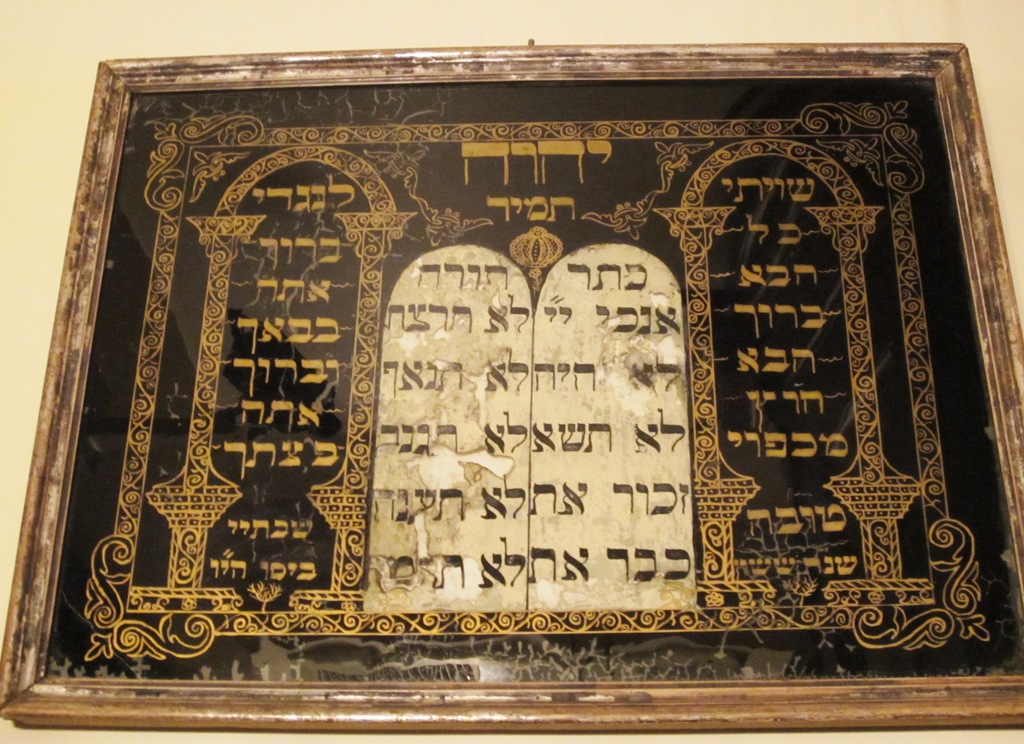 יהוה
תמיד
שויתי
לנגדי
כל
הבא
ברוך
הבא
הרץ
מכפרי
טובה
ברוך
אתה
בבאך
וברוך
אתה
בצתך
שבתיי
כתר
אנכי יי
לא היה
לא תשא
זכור את
כבד את
תורה
לא תרצח
לא תנאף
לא תגנב
לא תענה
לא